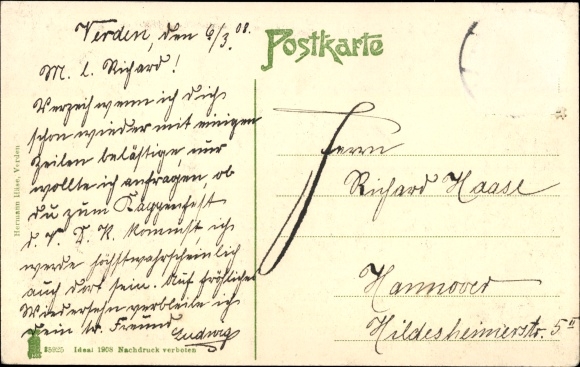 Verden, den 6/3. 08.
M. l. Richard!
Verzeih wenn ich dich
schon wieder mit einigen
Zeilen belästige, nur
wollte ich anfragen, ob
du zum Kappenfest
d. T. D. K. kommst, ich
werde höchstwahrscheinlich
auch dort sein. Auf fröhliches
Wiedersehn verbleibe ich
dein tr. Freund
Ludwig
Postkarte
Herrn
Richard Haase
Hannover
Hildesheimerstr. 5 II
Hermann Häse, Verden
Ideal 1908 Nachdruck verboten